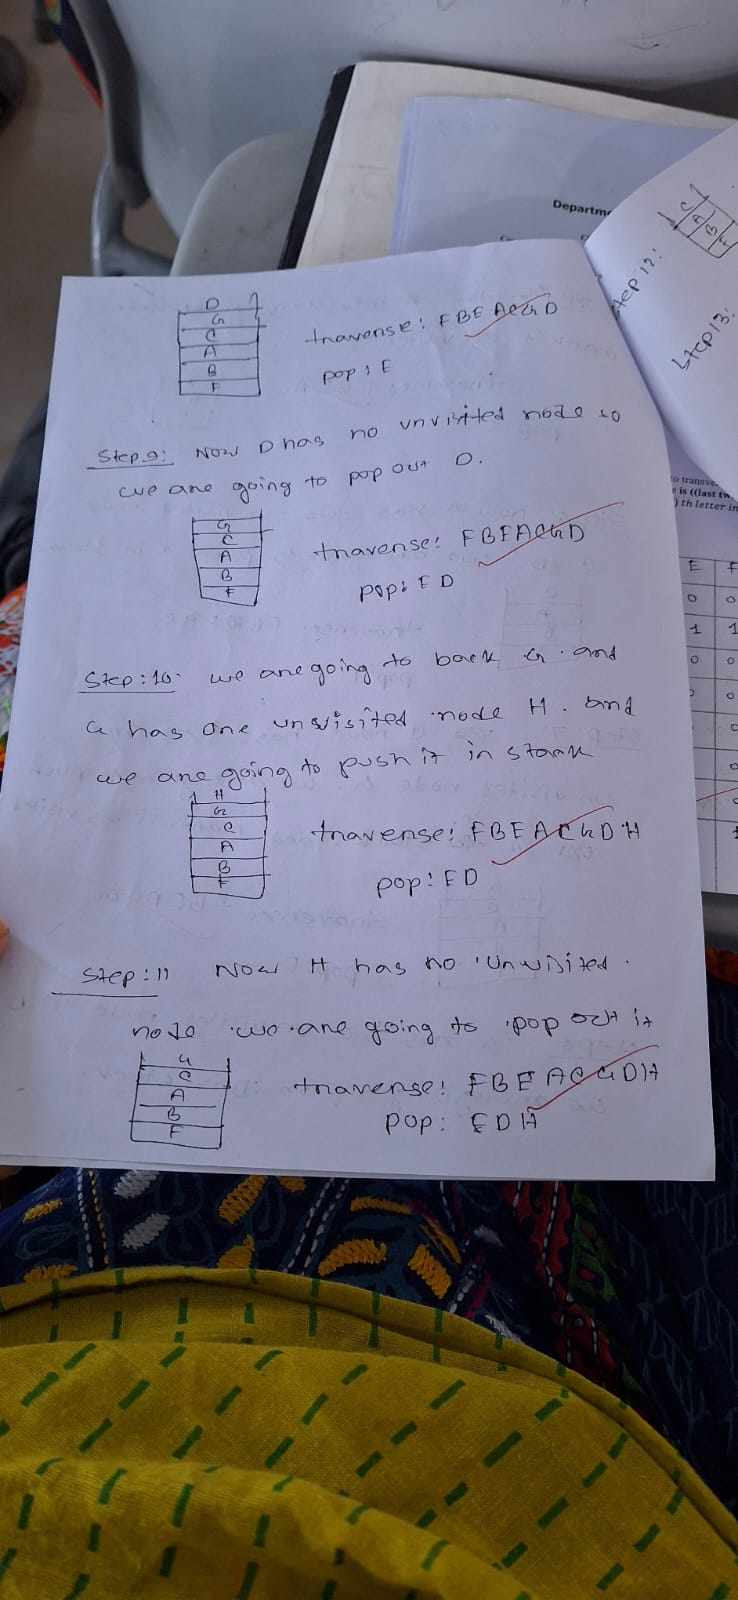 Departm
D
G
C
A
B
F
travense: FBEACGD
pop: E
Step 9: Now D has no unvisited node so
we are going to pop out D.
G
C
A
B
F
travense: FBEACGD
pop: ED
Step:10. we are going to back G. and
G has one unvisited node H. and
we are going to push it in stack
H
G
C
A
B
F
travense: FBEACGDH
pop: ED
Step:11 Now H has no unvisited.
node we are going to pop out it
G
C
A
B
F
travense: FBEACGDH
pop: EDH
C
A
B
F
Step 12:
Step 13:
is ((last tw
) th letter in
E F
0 0
1 1
0 0